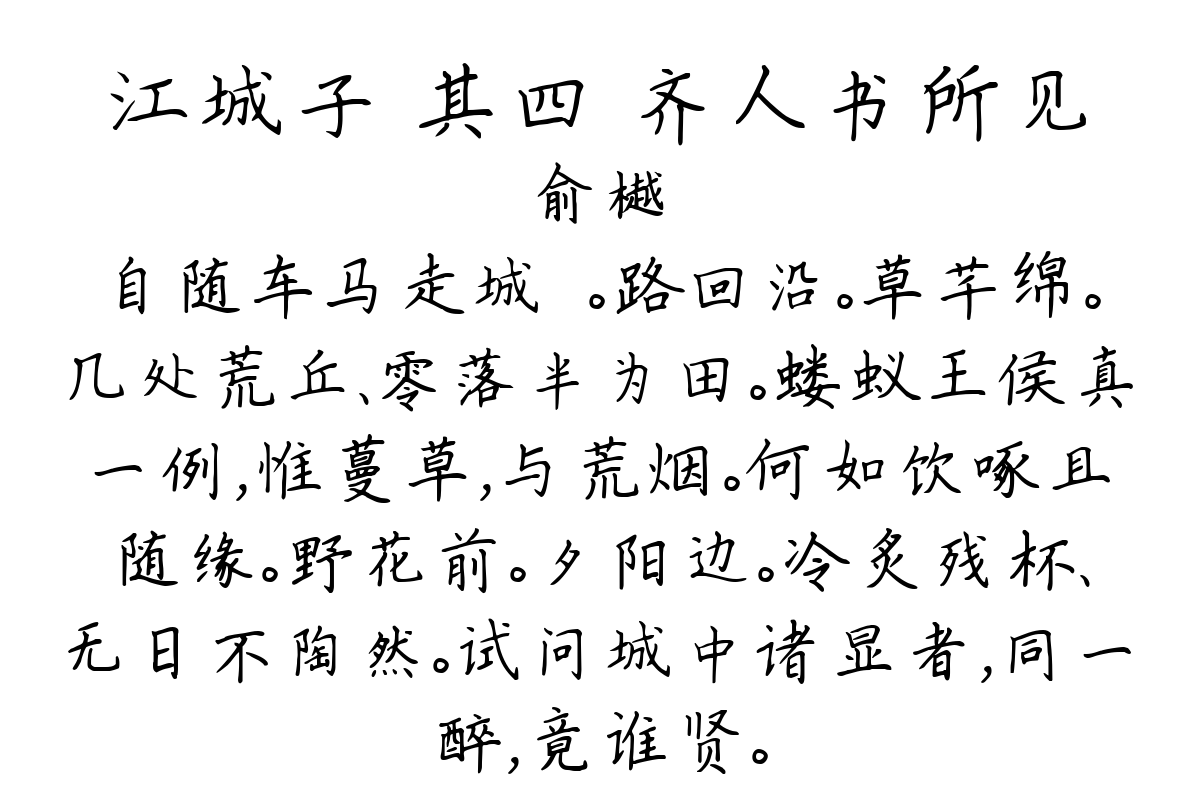 江城子 其四 齐人书所见
俞樾
自随车马走城 。路回沿。草芊绵。
几处荒丘、零落半为田。蝼蚁王侯真
一例,惟蔓草,与荒烟。何如饮啄且
随缘。野花前。夕阳边。冷炙残杯、
无日不陶然。试问城中诸显者,同一
醉,竟谁贤。